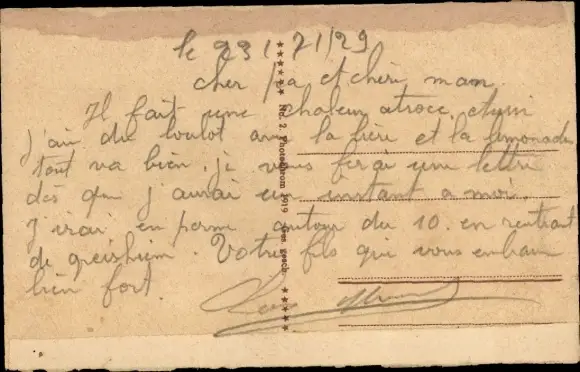 le 23/7/29
cher pa et chéri mam.
Il fait une chaleur atroce, et
j'ai du boulot avec la bière et la limonade
tout va bien. je vous ferai une lettre
dès que j'aurai un instant a moi.
J'irai en perme autour du 10. en rentrant
de greisheim. Votre fils qui vous embrasse
bien fort.
No. 2. Photochrom 1919 Ges. gesch.